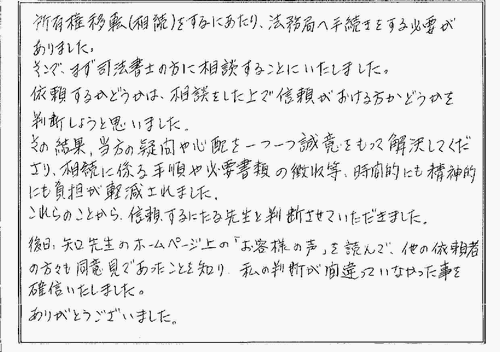 所有権移転(相続)をするにあたり、法務局へ手続きをする必要が
ありました。
そこで、まず司法書士の方に相談することにいたしました。
依頼するかどうかは、相談をした上で信頼がおける方かどうかを
判断しようと思いました。
その結果、当方の疑問や心配を一つ一つ誠意をもって解決してくだ
さり、相続に係る手順や必要書類の徴収等、時間的にも精神的
にも負担が軽減されました。
これらのことから、信頼するにたる先生と判断させていただきました。
後日、矢口先生のホームページ上の「お客様の声」を読んで、他の依頼者
の方々も同意見であったことを知り、私の判断が間違っていなかった事を
確信いたしました。
ありがとうございました。